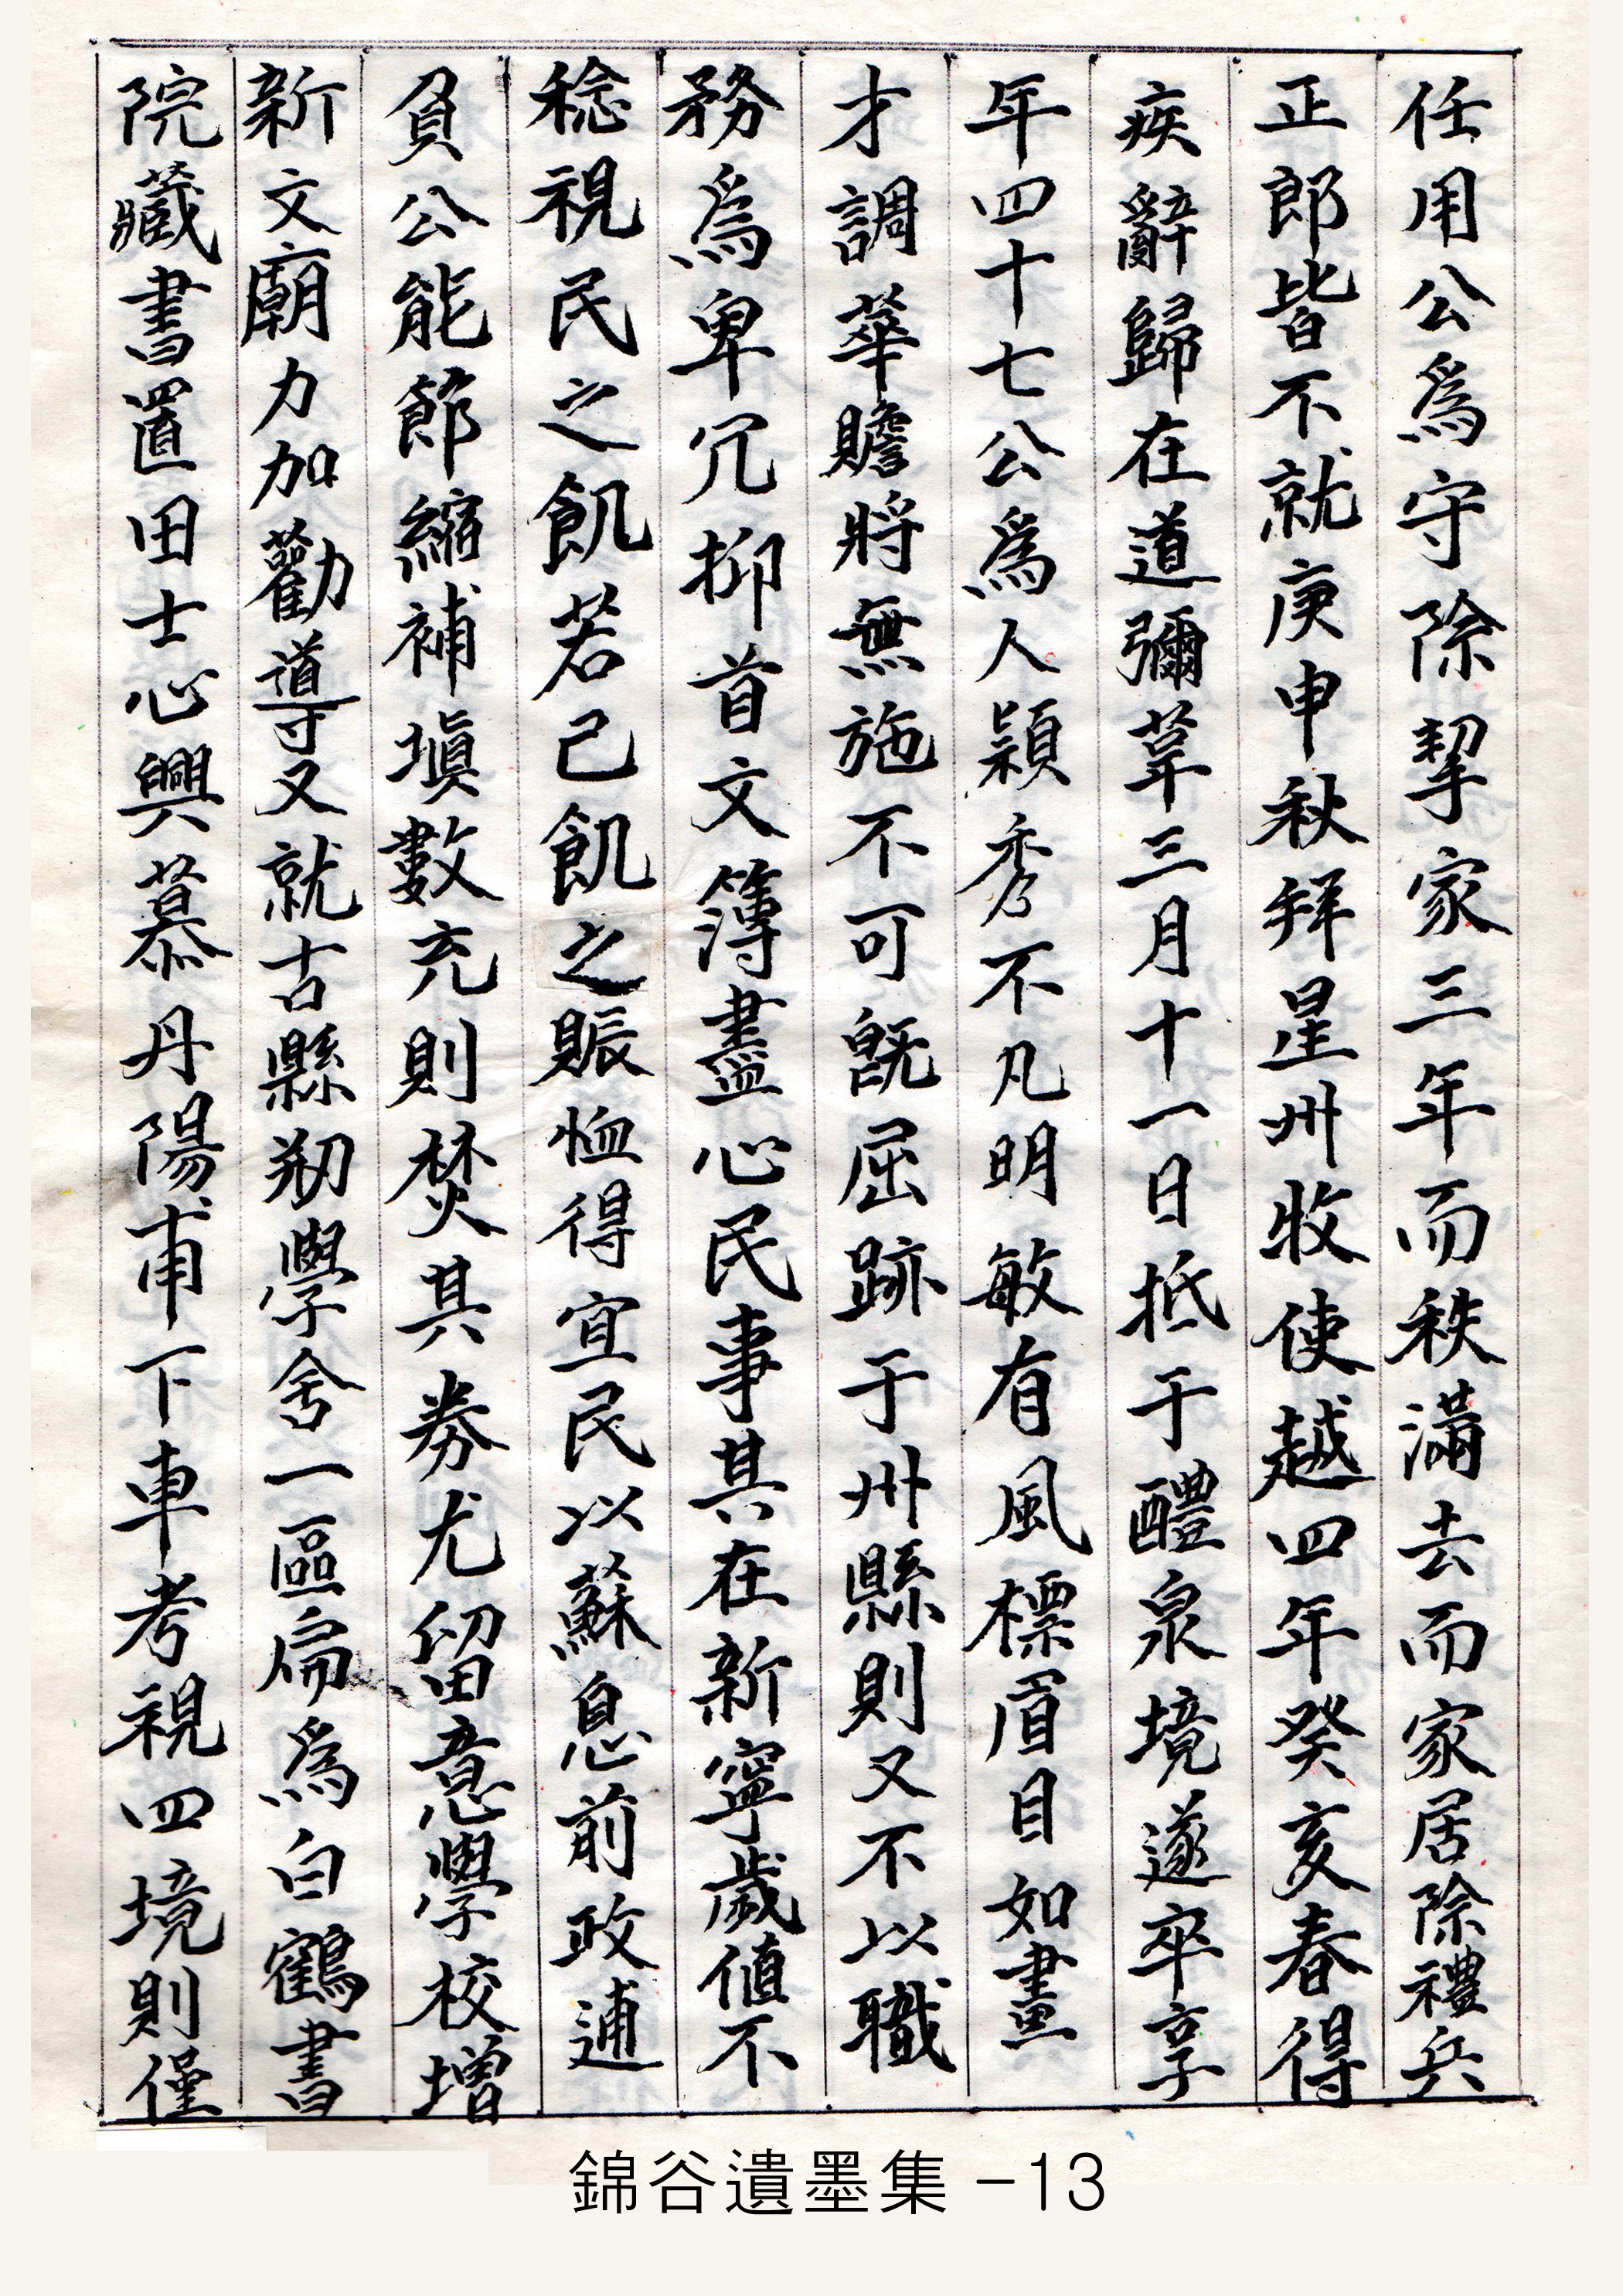 任用公爲守除挈家三年而秩滿去而家居除禮兵
正郎皆不就庚申秋拜星州牧使越四年癸亥春得
疾辭歸在道彌革三月十一日抵于醴泉境遂卒享
年四十七公爲人潁秀不凡明敏有風標眉目如畫
才調華贍將無施不可旣屈跡于州縣則又不以職
務爲卑冗抑首文簿盡心民事其在新寧歲値不
稔視民之飢若己飢之賑恤得宜民以蘇息前政逋
負公能節縮補塡數充則焚其券尤留意學校增
新文廟力加勸導又就古縣刱學舍一區扁爲白鶴書
院藏書置田士心興慕丹陽甫下車考視四境則僅
錦谷遺墨集 -13